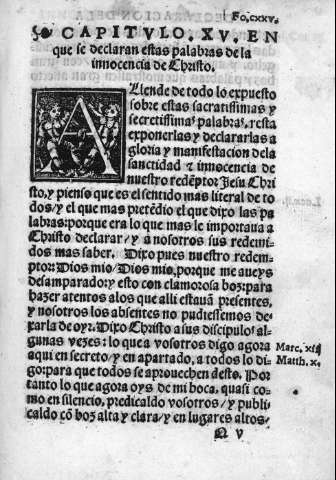 Fo.cxxv.
CAPITVLO.XV.EN
que se declaran estas palabras de la
innocencia de Christo.
Allende de todo lo expuesto
sobre estas sacratissimas y
secretissimas palabras, resta
exponerlas y declararlas a
gloria y manifestacion de la
sanctidad & innocencia de
nuestro redẽptor Jesu Chri
sto, y pienso que es el sentido mas literal de to
dos/ y el que mas pretẽdio el que dixo las pa
labras: porque era lo que mas le importaua a
Christo declarar/ y a nosotros sus redemi
dos mas saber. Dixo pues nuestro redem-
ptor: Dios mio/ Dios mio, porque me aueys
desamparado: y esto con clamorosa boz: para
hazer atentos alos que alli estauã presentes,
y nosotros los absentes no pudiessemos de
xarla de oyr. Dixo Christo a sus discipulos al-
gunas vezes: lo que a vosotros digo agora
aqui en secreto/ y en apartado, a todos lo di-
go: para que todos se aprouechen deste. Por
tanto lo que agora oys de mi boca, quasi co-
mo en silencio, predicaldo vosotros/ y publi-
caldo cõ boz alta y clara/ y en lugares altos,
Marc. xii
Matth. x.
N v